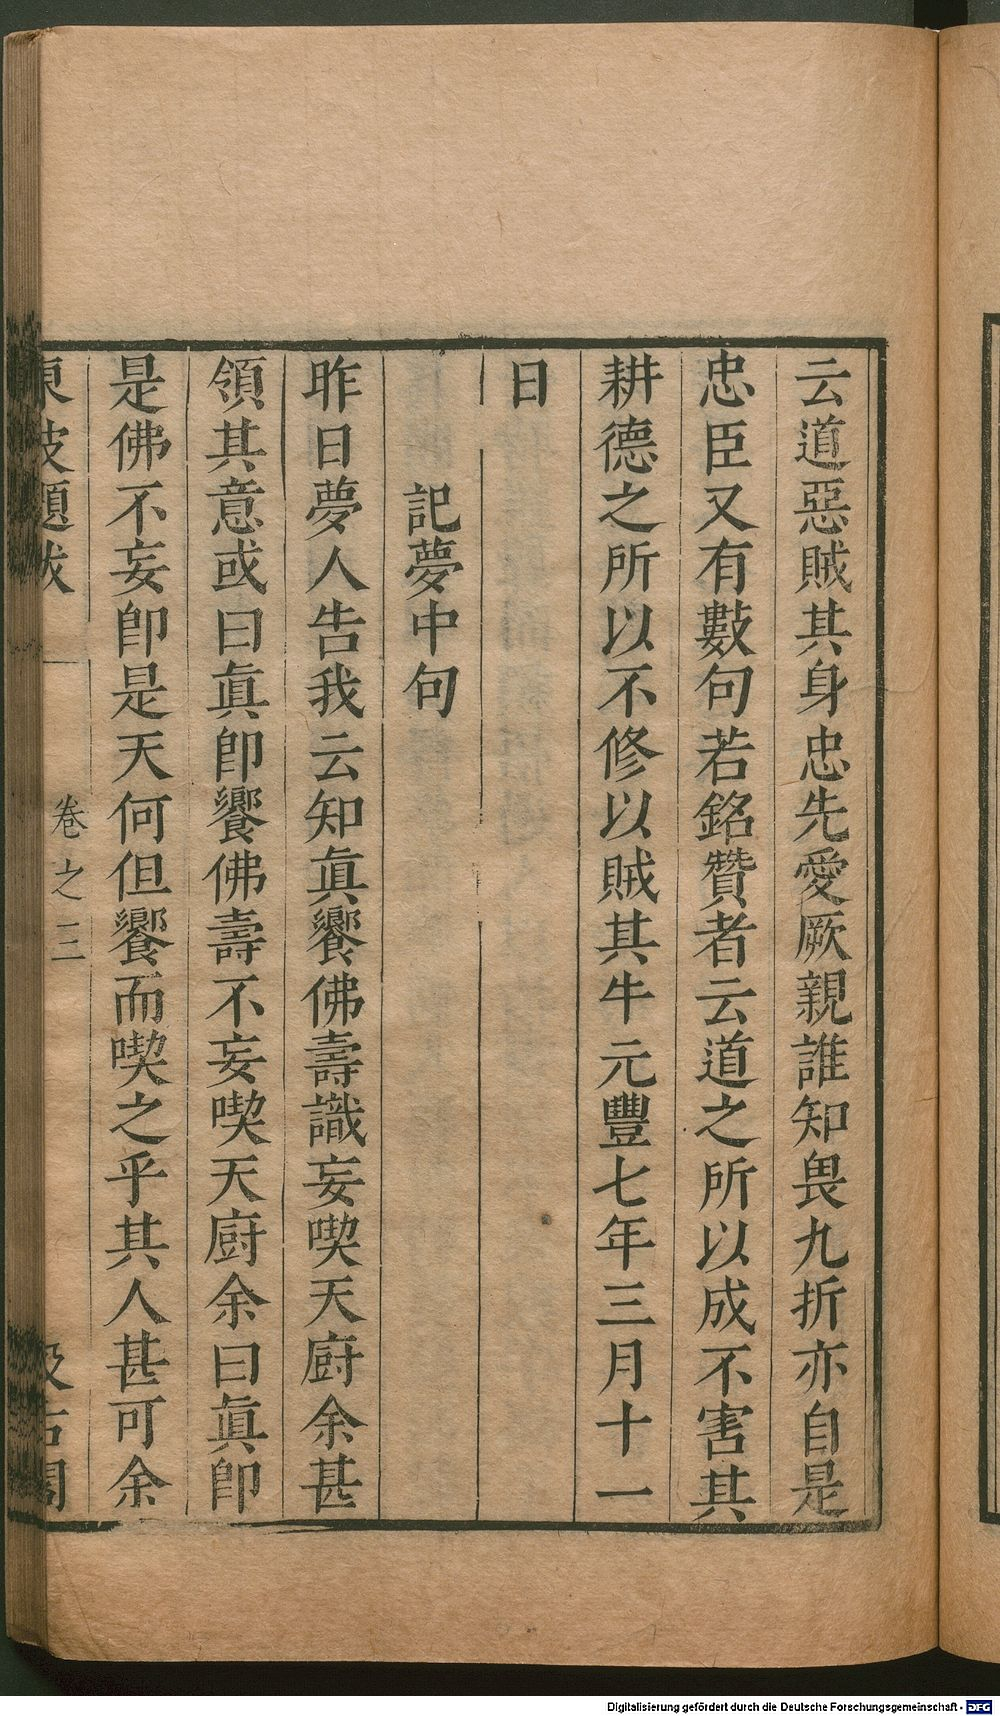 云道惡賊其身忠先愛厥親誰知畏九折亦自是
忠臣又有數句若銘贊者云道之所以成不害其
耕德之所以不修以賊其牛元豐七年三月十一
日
記夢中句
昨日夢人告我云知眞饗佛壽識妄喫天廚余甚
領其意或曰眞卽饗佛壽不妄喫天廚余曰眞卽
是佛不妄卽是天何但饗而喫之乎其人甚可余
東坡題跋
卷之三
汲古閣
Digitalisierung gefördert durch die Deutsche Forschungsgemeinschaft - DFG